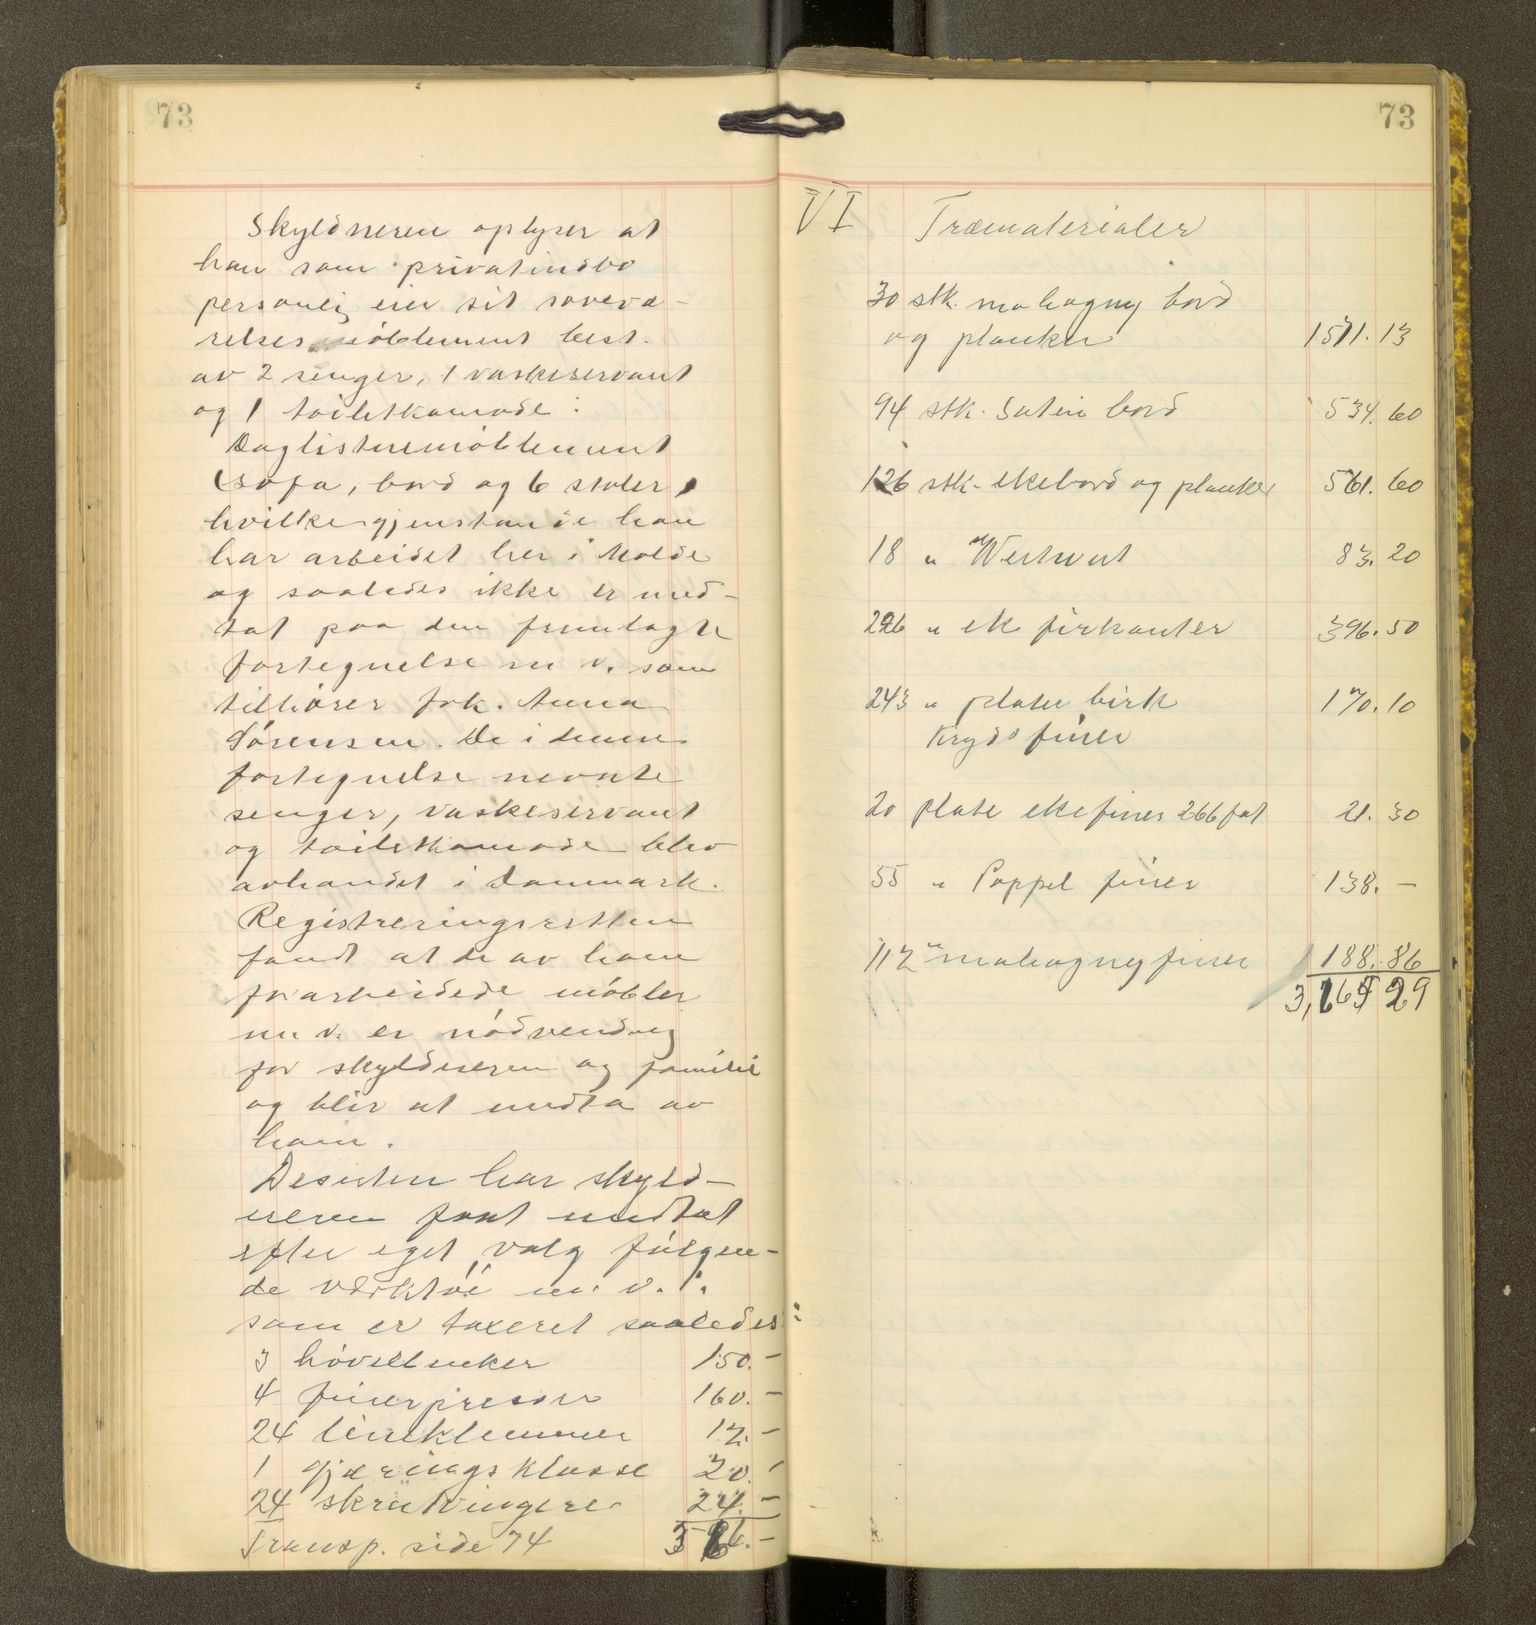 73
Skyldneren oplyser at
han som privatindbo
personlig eier sit soveva-
relsesmøblement best.
av 2 senger, 1 vaskeservant
og 1 toiletkomode:
Daglistuemøblement
(sofa, bord og 6 stoler)
hvilke gjenstande han
har arbeidet her i Molde
og saaledes ikke er med-
tat paa den fremlagte
fortegnelse m v. som
tilhører frk. Anna
Sørensen. De i denne
fortegnelse nevnte
senger, vaskeservant
og toiletkomode blev
avhændet i Danmark.
Registreringsretten
fandt at de av ham
forarbeidede møbler
m. v. er nødvendig
for skyldneren og familie
og blir at undta av
ham.
Desuten har skyld-
neren faat undtat
efter eget valg følgen-
de verktøi m. v.:
som er taxeret saaledes:
3 høvelbenker 150.-
4 finerpresser 160.-
24 limklemmer 12.-
1 gjæringsklasse 20.-
24 skrutvingere 24.-
Transp. side 74 366.-
73
VI Træmaterialer
30 stk. mahogny bord
og planker 1571.13
94 stk. Satin bord 534.60
126 stk. ekebord og planker 561.60
18 " Westnut 83.20
226 " ek firkanter 396.50
243 " plater birk 170.10
Krydsfiner
20 plate ekefiner 266 fot 21.30
55 " Poppel finer 138.-
112 " mahogny finer 188.86
3,665 29